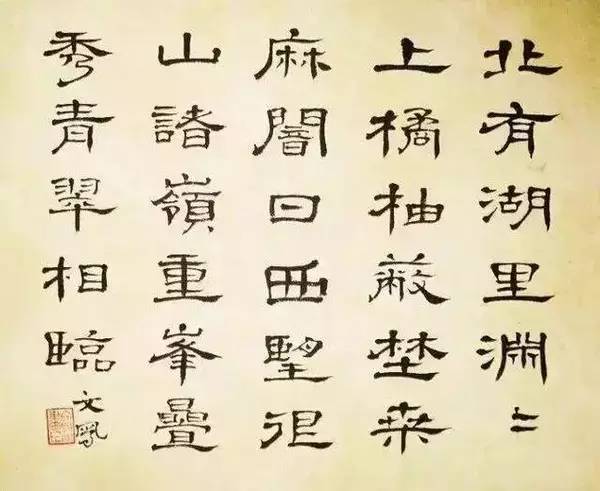 北有湖里淵〻
上橘柚蔽埜桒
麻闇日西朢很
山諸嶺重峯疊
秀青翠相臨
文鳳